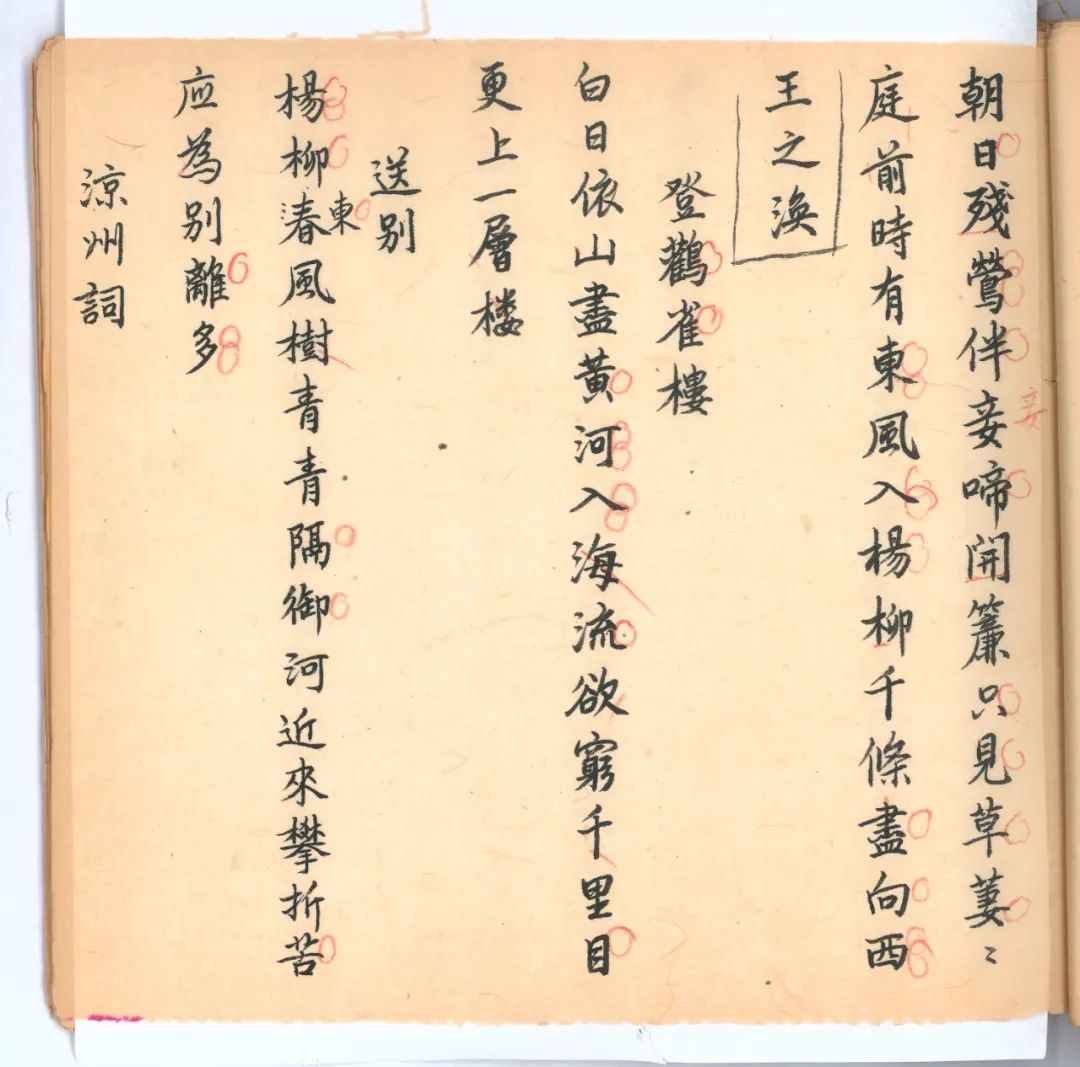 朝日殘鶯伴妾啼開簾只見草萋〻
妾
庭前時有東風入楊柳千條盡向西
王之渙
登鸛雀樓
白日依山盡黃河入海流欲窮千里目
更上一層楼
送别
楊柳春風樹青青隔御河近來攀折苦
東
应為别離多
涼州詞